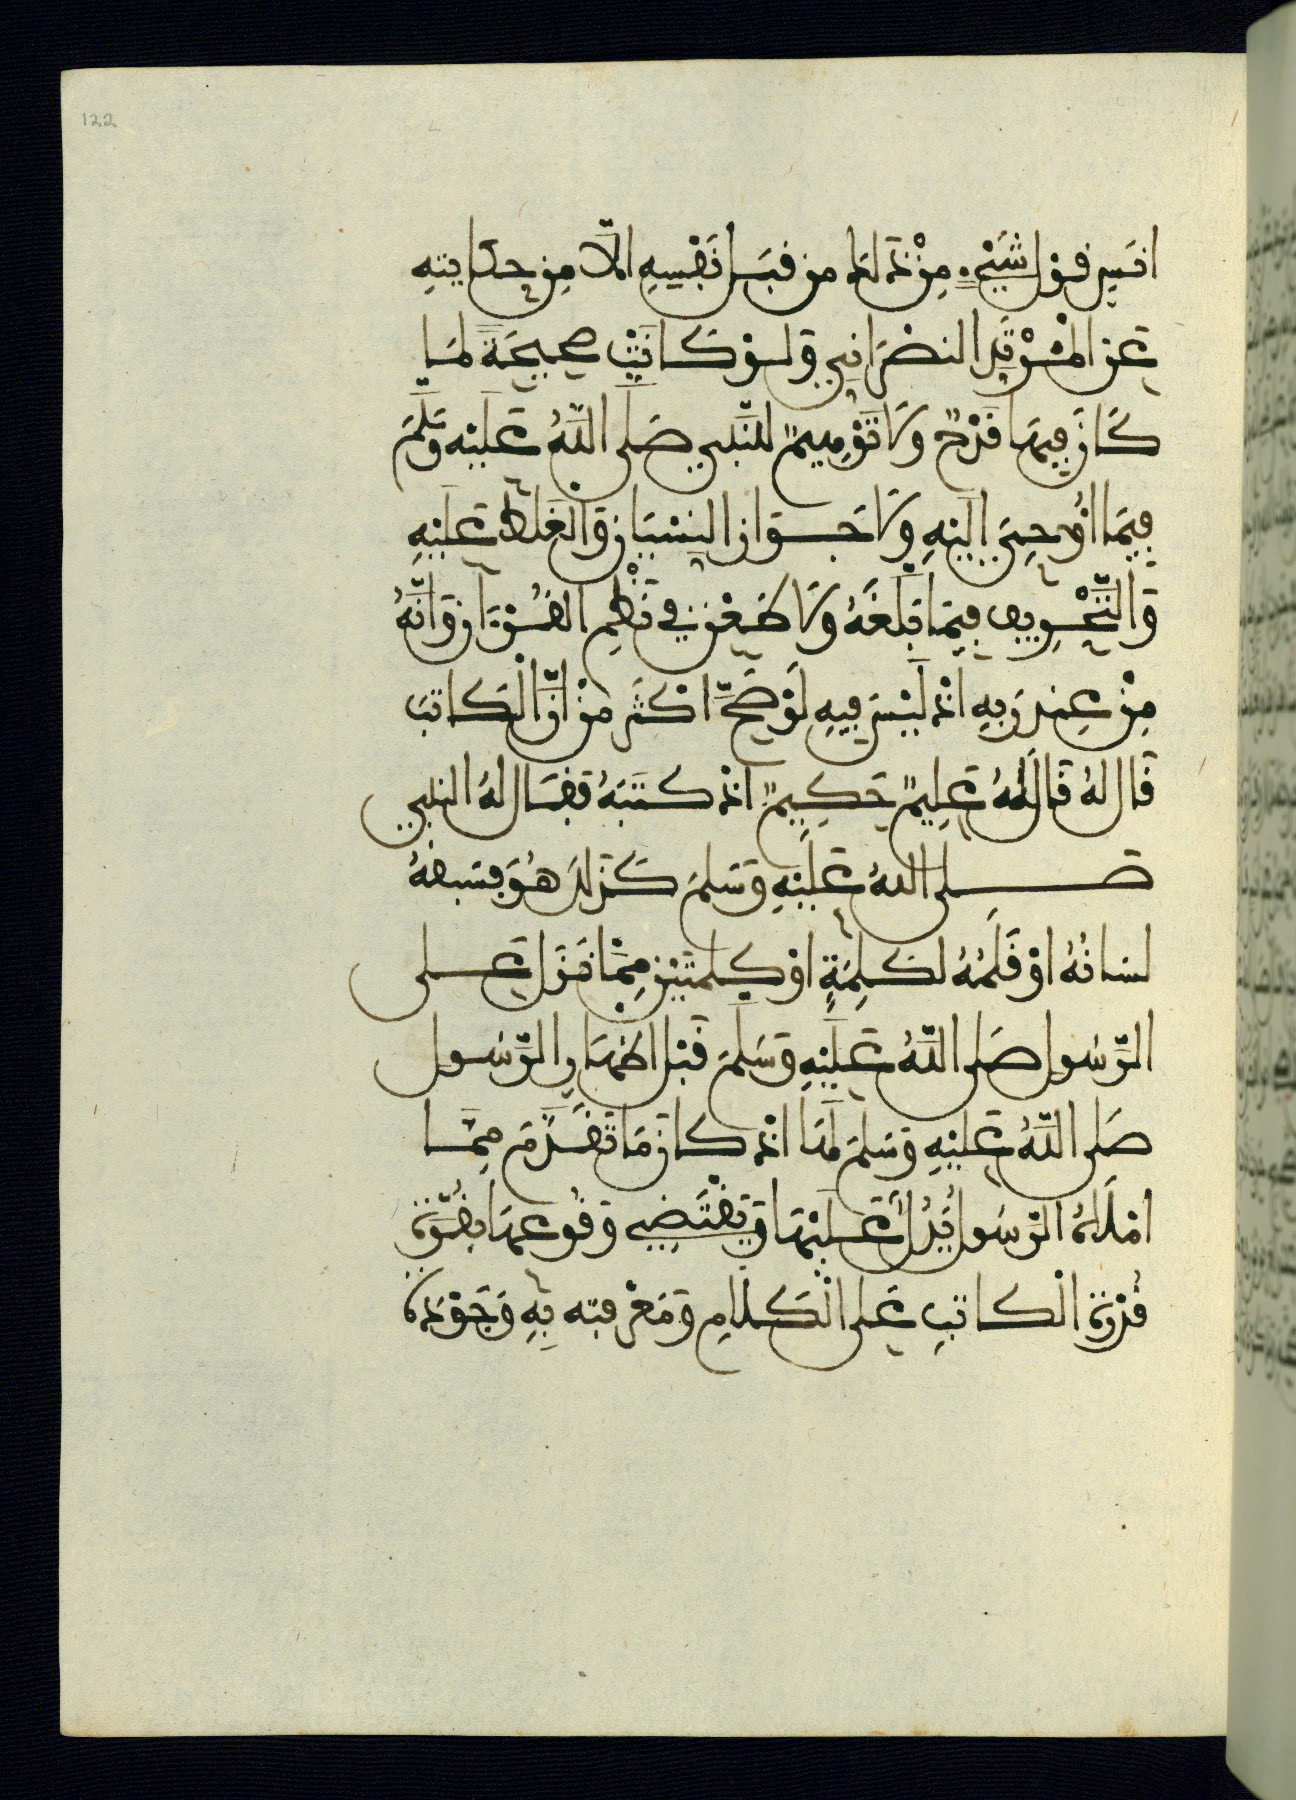 122
انس قول شيء من ذلك من قبل نفسه الا من حكايته
عن المرتد النصراني ولو كانت صحيحة لما
كان فيها قدح ولا توهيم للنبي صلى الله عليه وسلم
فيما اوحي اليه ولا جواز النسيان والغلط عليه
والتحريف فيما بلغه ولا طعن في نظم القرءان وانه
من عند ربه اذ ليس فيه لو صح اكثر من ان الكاتب
قال له عليم حكيم اذ كتبه فقال له النبي
صلى الله عليه وسلم كذلك هو فسبقه
لسانه او قلمه لكلمة او كلمتين مما نزل على
الرسول صلى الله عليه وسلم قبل اظهار الرسول
صلى الله عليه وسلم لها اذ كان ما تقدم مما
املاه الرسول يدل عليها ويقتضي وقوعها بقوة
قدرة الكاتب على الكلام ومعرفته به وجودة